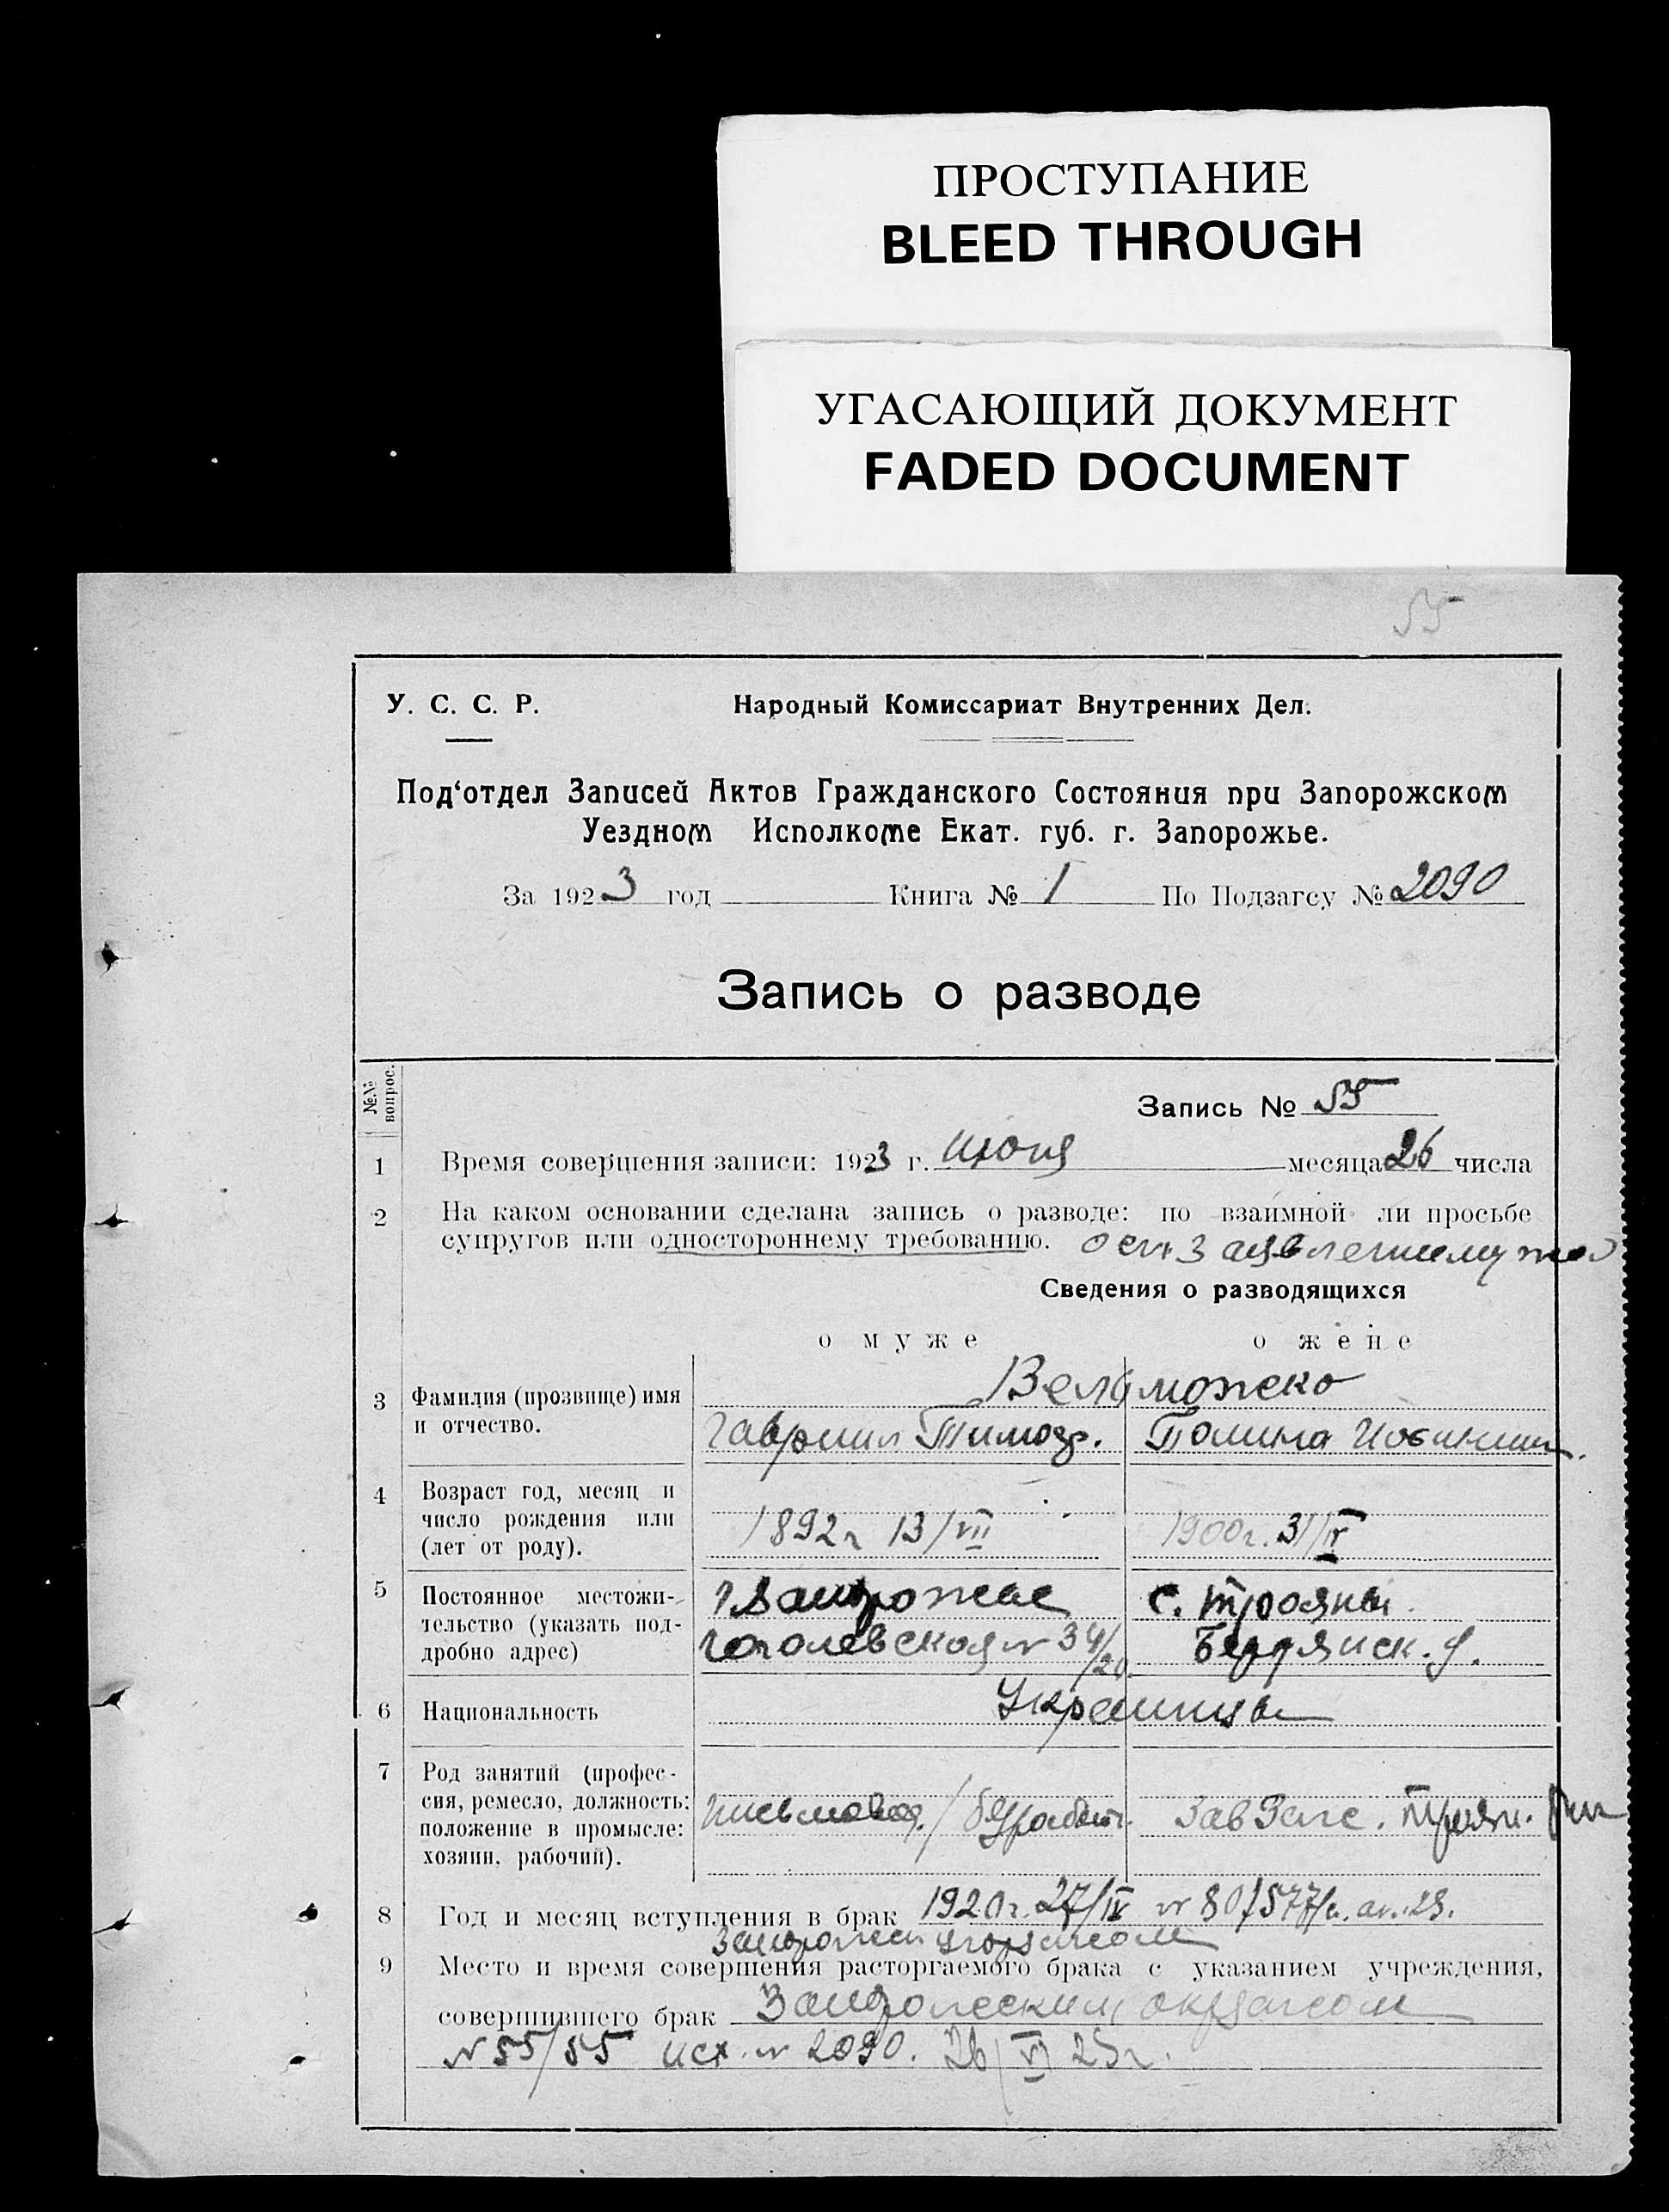 ПРОСТУПАНИЕ
BLEED THROUGH
УГАСАЮЩИЙ ДОКУМЕНТ
FADED DOCUMENT
55
У. С. С. Р. Народный Комиссариат Внутренних Дел.
Под‘отдел Записей Актов Гражданского Состояния при Запорожском
Уездном Исполкоме Екат. губ. г. Запорожье.
За 1923 год Книга № 1 По Подзагсу № 2090
Запись о разводе
№№ вопрос.
Запись № 55
1 Время совершения записи: 1923 г. июня месяца 26 числа
2 На каком основании сделана запись о разводе: по взаимной ли просьбе
супругов или одностороннему требованию.
Сведения о разводящихся
о муже о жене
3 Фамилия (прозвище) имя
и отчество.
Велиможско
Гавриил Тимоф. Полина
4 Возраст год, месяц и
число рождения или
(лет от роду).
1892 г 13/VII 1900 г. 31/IV
5 Постоянное местожи-
тельство (указать под-
дробно адрес)
г Запорожье с. Трояны
Гоголевская № 34/20 Бердянск. у.
6 Национальность Украинцы
7 Род занятий (профес-
сия, ремесло, должность:
положение в промысле:
хозяин, рабочий).
письмовод. / безработн. Зав Загс. Троян.
8 Год и месяц вступления в брак 1920 г. 27/IV № 80/577
9 Место и время совершения расторгаемого брака с указанием учреждения,
совершившего брак Запорожским окрзагсом
№ 55/55 исх. № 2090. 26/VI 23 г.